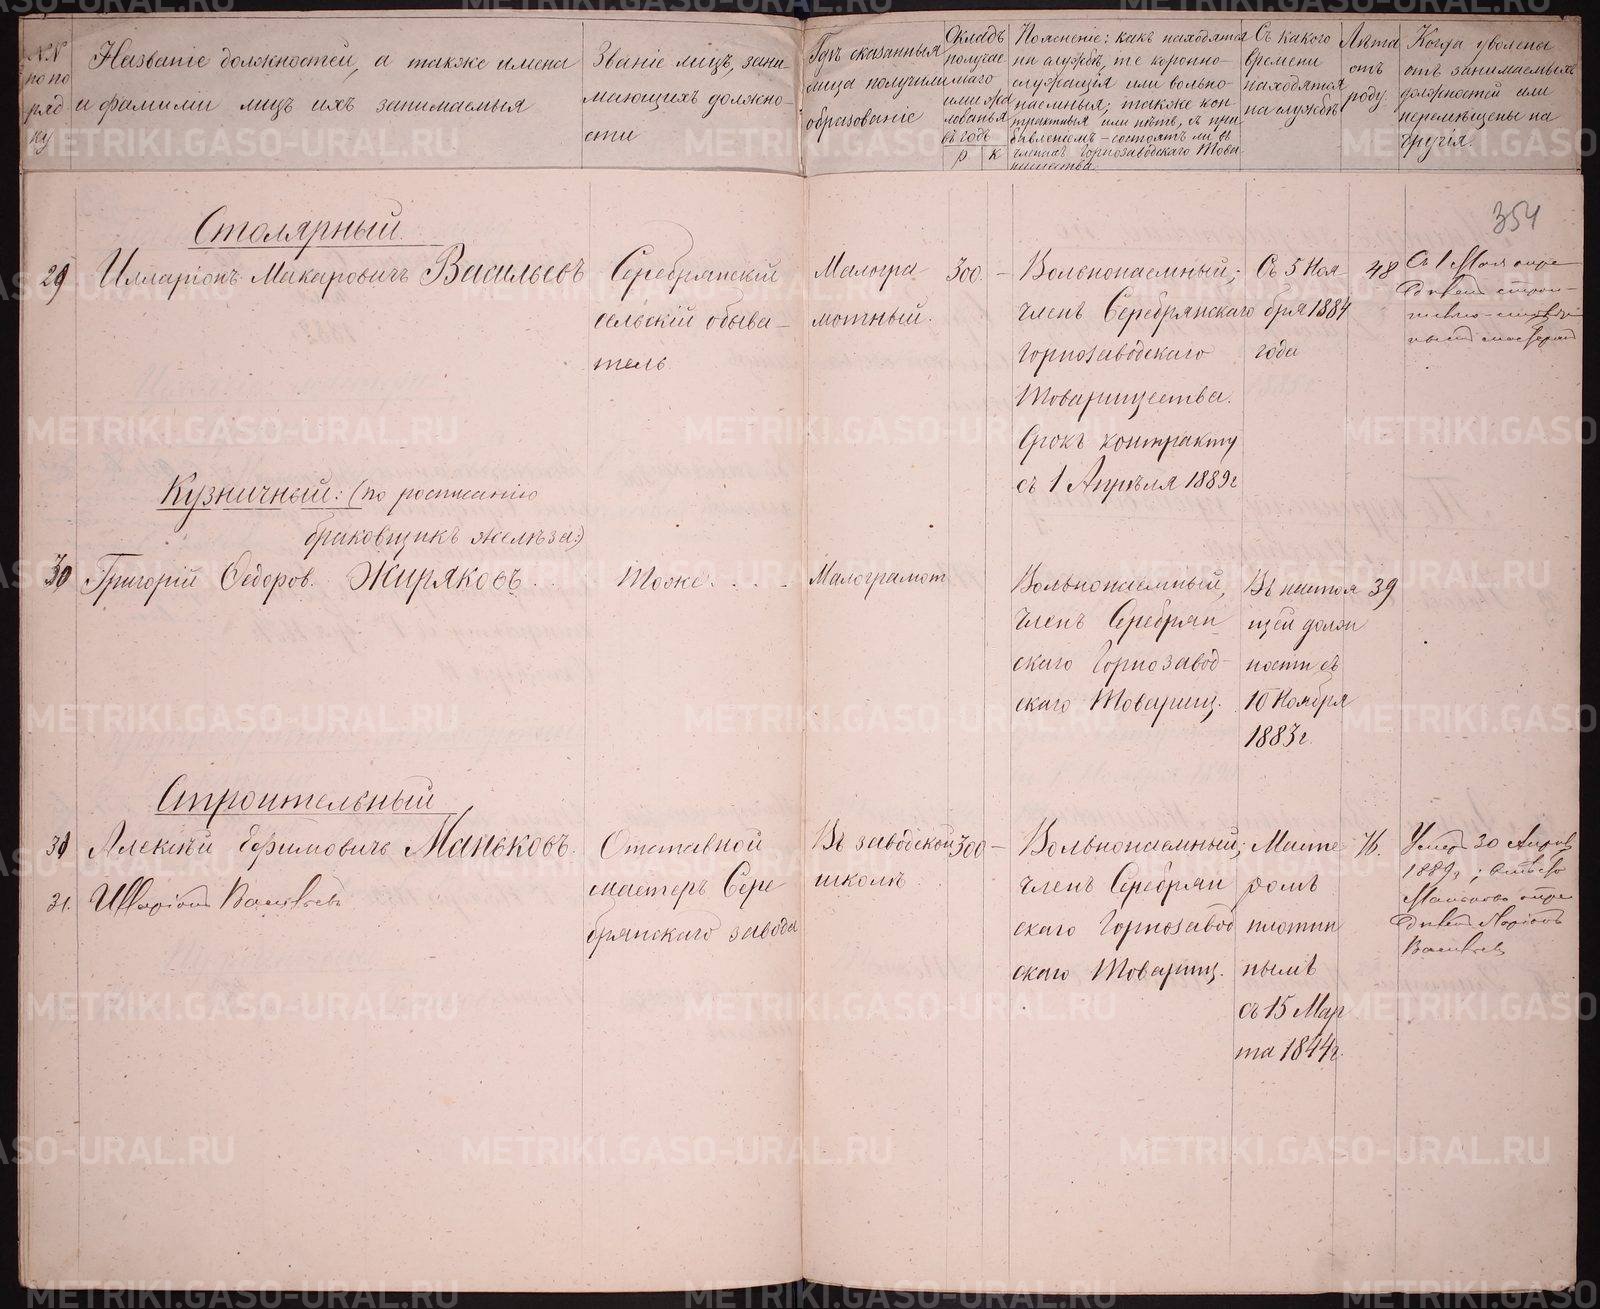 NN по по ряд ку
Названіе должностей, а также имена
и фамиліи лицъ ихъ занимаемыя
Званіе лицъ, зани-
мающихъ должно-
сти
Гдѣ сказанныя
лица получили
образованіе
Окладъ
получае
маго
или жа
лованья
въ годъ
Р К
Поясненіе: какъ находятся
на службѣ, те коронно-
служащія или вольно-
наемныя; также кон
трактныя или нѣтъ, съ при
бавленіемъ – состоятъ ли въ
членахъ Горнозаводскаго Това
рищества
Съ какого
времени
находятся
на службѣ
Лѣта
отъ
роду
Когда уволены
отъ занимаемыхъ
должностей или
перемѣщены на
другія.
354
Столярный
29 Илларіонъ Макаровичъ Васильевъ
Серебрянскій
сельскій обыва-
тель
Малогра
мотный.
300. –
Вольнонаемный;
членъ Серебрянскаго
Горнозаводскаго
Товарищества.
Срокъ контракту
съ 1 Апрѣля 1889г
Съ 5 Ноя-
бря 1884
года
48
Съ 1 Мая опре
дѣленъ строи-
Кузничный: (по росписанію
браковщикъ желѣза:)
30 Григорій Ѳедоров. Жиряковъ . .
Тоже. . . .
Малограмот
Вольнонаемный,
членъ Серебрян
скаго Горнозавод-
скаго Товарищ.
Въ настоя
щей долж
ности съ
10 Ноября
1883г.
39
Строительный
30 Алексѣй Ефимовичъ Маньковъ.
Отставной
мастеръ Сере
брянскаго завода
Въ заводской
школѣ
300 –
Вольнонаемный;
членъ Серебрян
скаго Горнозавод
скаго Товарищ.
Масте
ромъ
плотин
нымъ
съ 15 Мар
та 1844г.
76.
Умеръ 30 Апрѣл
1889г; вмѣсто
Манькова опре
дѣленъ Ларіонъ
Васильевъ
31. Илларіонъ Васильевъ
METRIKI.GASO-URAL.RU